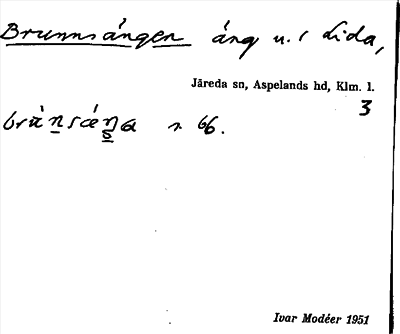 Brunnsängen äng u. / Lida,
Järeda sn, Aspelands hd, Klm. l.
3
66.
Ivar Modéer 1951